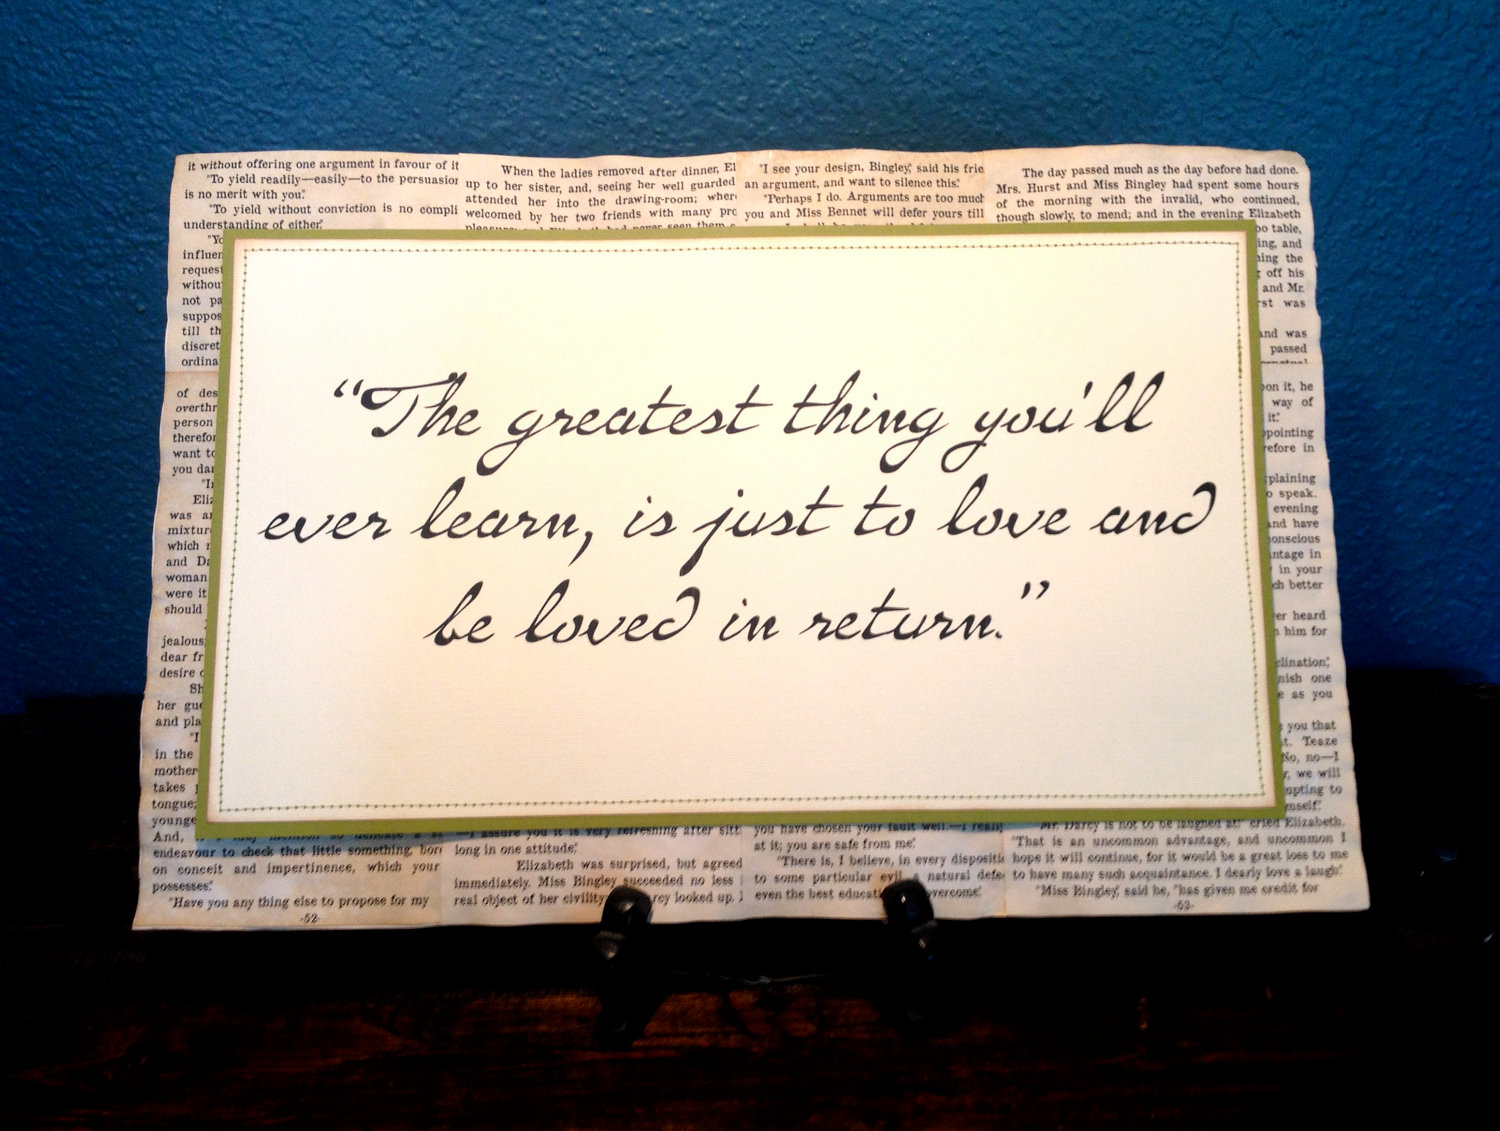 it without offering one argument in favour of it
"To yield readily—easily—to the persuasion
is no merit with you."
"To yield without conviction is no compli
understanding of either."
When the ladies removed after dinner, El
up to her sister, and, seeing her well guarded
attended her into the drawing-room; where
welcomed by her two friends with many pro
"I see your design, Bingley," said his frie
an argument, and want to silence this."
"Perhaps I do. Arguments are too much
you and Miss Bennet will defer yours till
The day passed much as the day before had done.
Mrs. Hurst and Miss Bingley had spent some hours
of the morning with the invalid, who continued,
though slowly, to mend; and in the evening Elizabeth
influen
request
without
not pa
suppos
till th
discret
ordina
of des
overthr
person
therefor
want to
you dar
"I
Eliz
was a
mixture
which
and Da
woman
were it
should
jealous
dear fr
desire
Sh
her gue
and pla
"I
in the
mother
takes
tongue;
younge
And,
"The greatest thing you'll
ever learn, is just to love and
be loved in return."
table,
ing, and
ing the
off his
and Mr.
rst was
and was
passed
on it, he
way of
it."
pointing
refore in
plaining
speak.
evening
and have
onscious
ntage in
in your
ch better
er heard
him for
clination,"
nish one
as you
you that
Teaze
No, no—I
we will
mpting to
mself."
endeavour to check that little something, bor
on conceit and impertinence, which your
possesses."
"Have you anything else to propose for my
-52-
"I assure you it is very refreshing after sitt
long in one attitude."
Elizabeth was surprised, but agreed
immediately. Miss Bingley succeeded no less
real object of her civility rcy looked up.
you have chosen your fault well.—I really
at it; you are safe from me."
"There is, I believe, in every dispositi
to some particular evil, a natural defe
even the best educati overcome."
"Mr. Darcy is not to be laughed at!" cried Elizabeth.
"That is an uncommon advantage, and uncommon I
hope it will continue, for it would be a great loss to me
to have many such acquaintance. I dearly love a laugh."
"Miss Bingley," said he, "has given me credit for
-53-